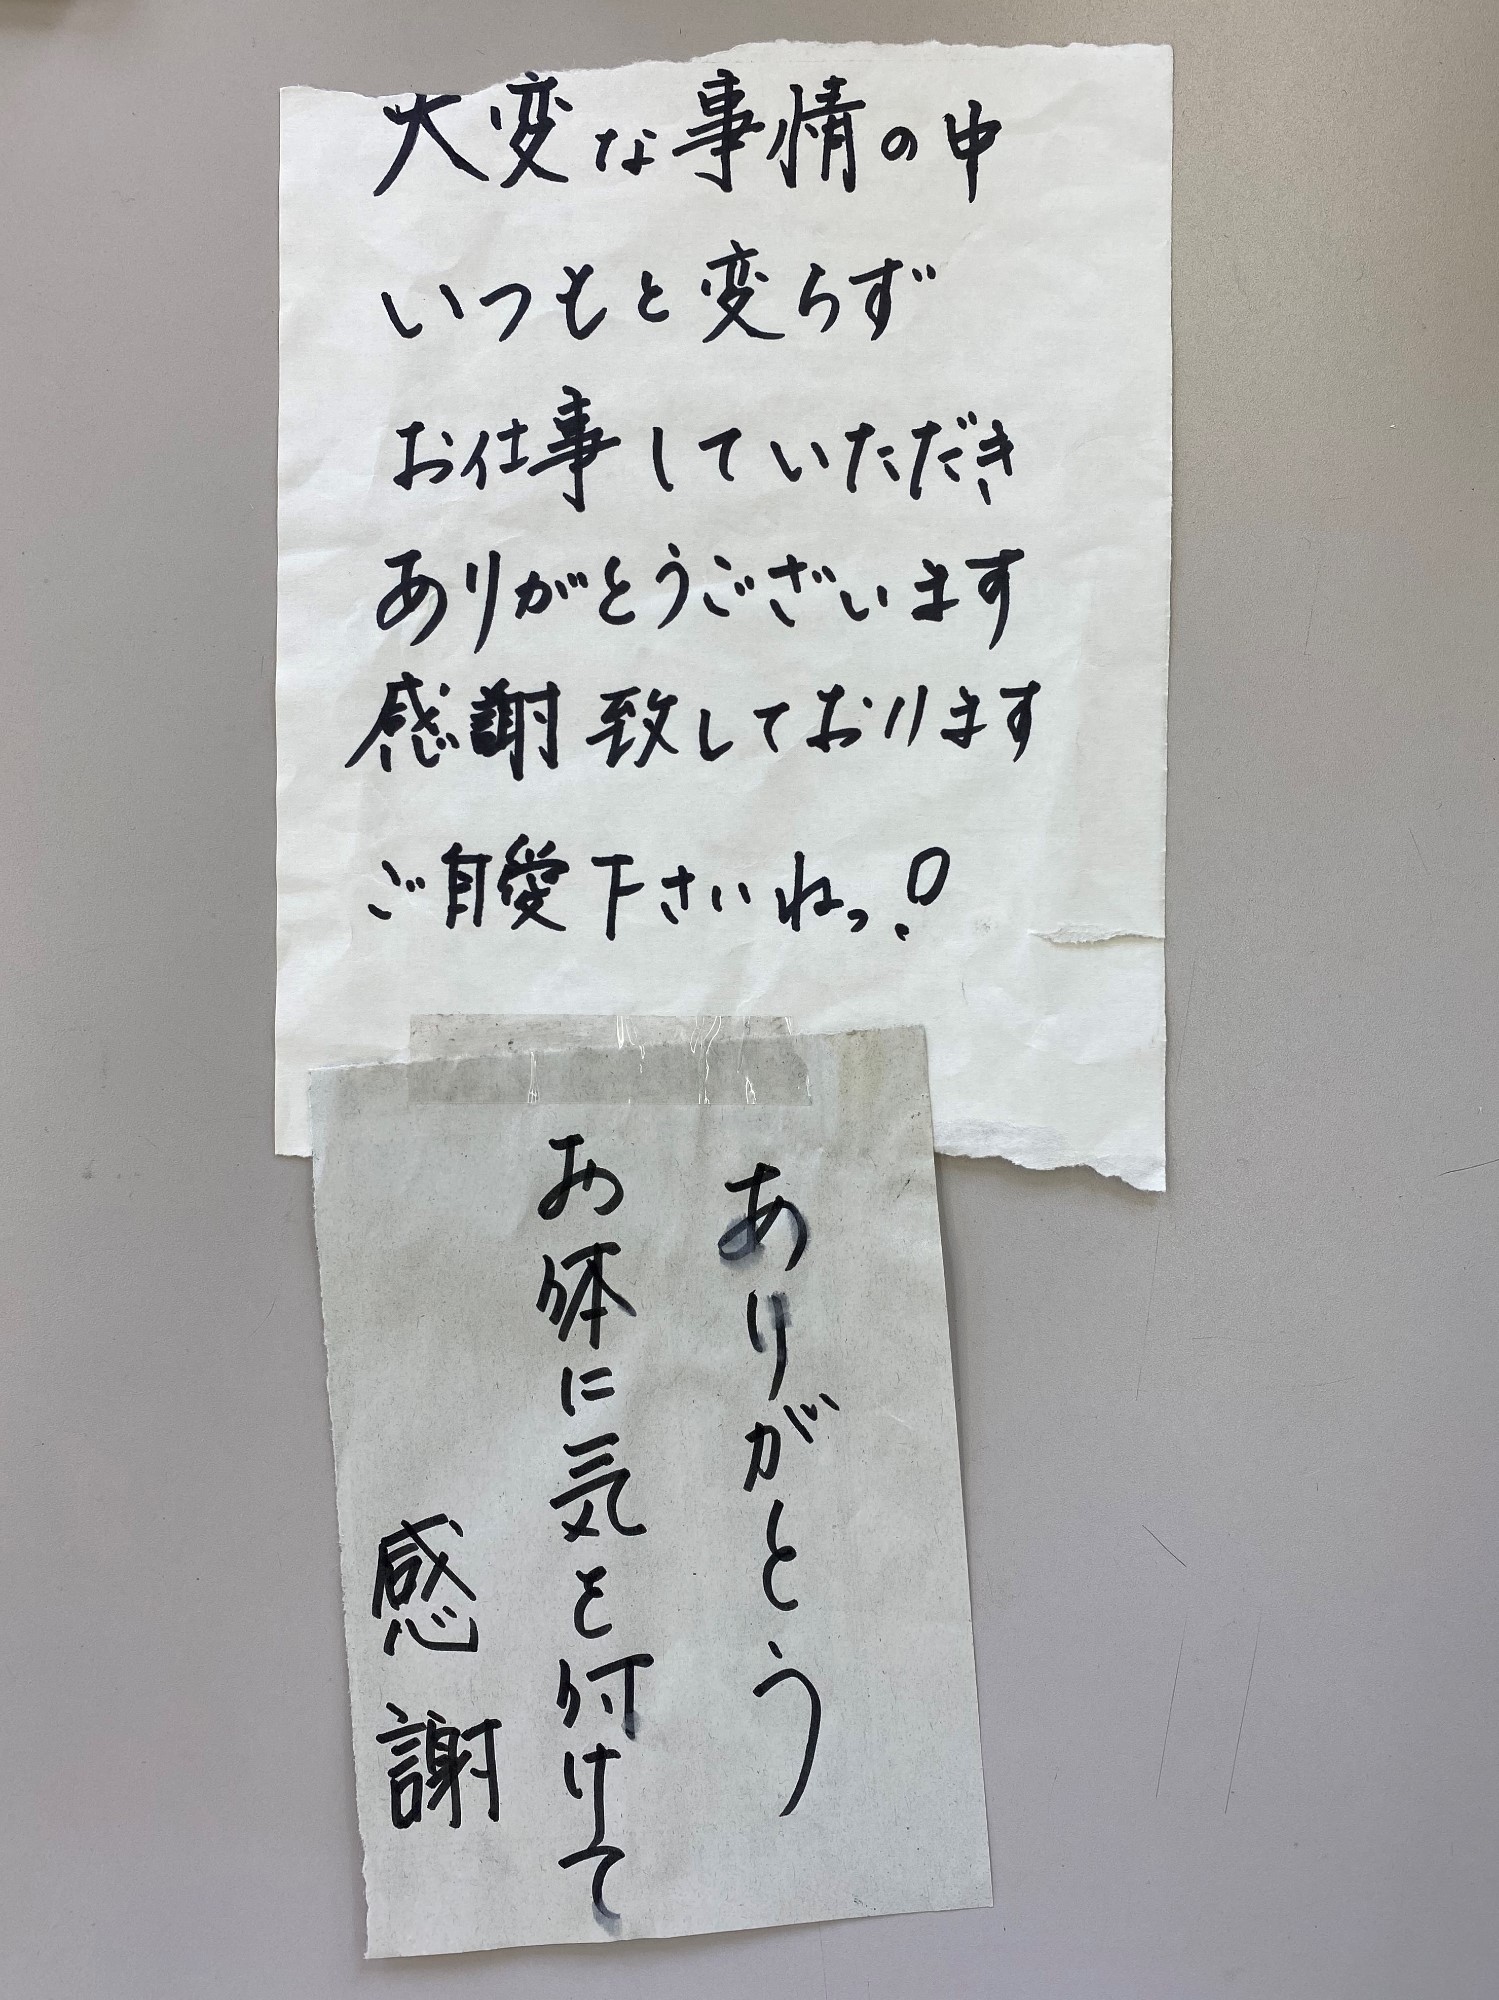 大変な事情の中
いつもと変らず
お仕事していただき
ありがとうございます
感謝致しております
ご自愛下さいねっ!
ありがとう
お体に気を付けて
感謝